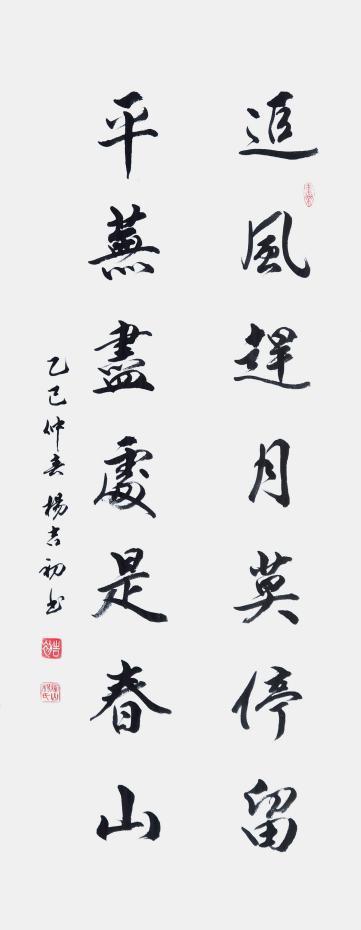 追風趕月莫停留
平蕪盡處是春山
乙巳仲春楊吉初書